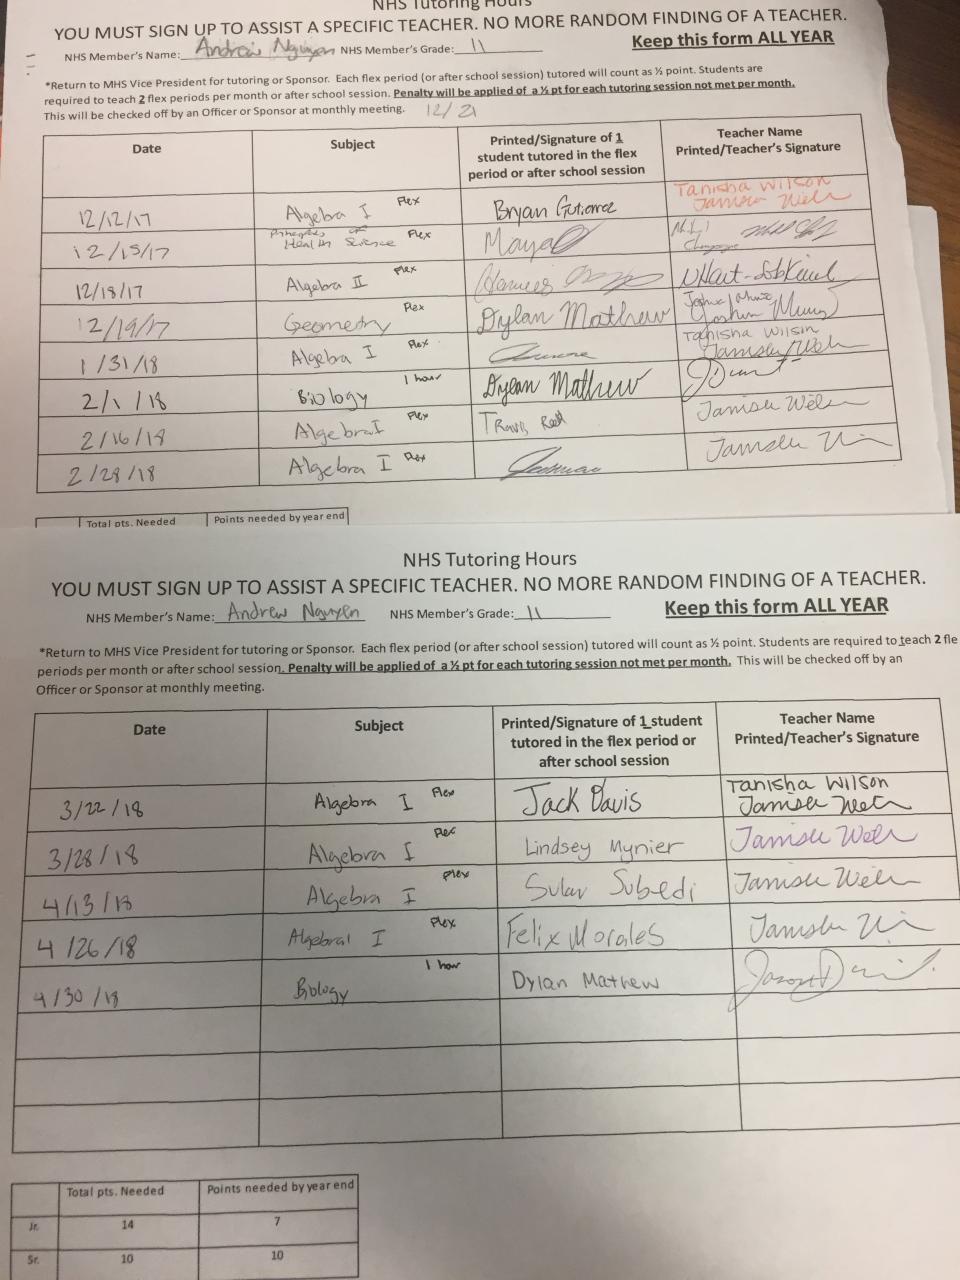 NHS Tutoring Hours
YOU MUST SIGN UP TO ASSIST A SPECIFIC TEACHER. NO MORE RANDOM FINDING OF A TEACHER.
NHS Member's Name: Andrew Nguyen NHS Member's Grade: 11 Keep this form ALL YEAR
*Return to MHS Vice President for tutoring or Sponsor. Each flex period (or after school session) tutored will count as ½ point. Students are
required to teach 2 flex periods per month or after school session. Penalty will be applied of a ½ pt for each tutoring session not met per month.
This will be checked off by an Officer or Sponsor at monthly meeting. 12/21
Date Subject Printed/Signature of 1 student tutored in the flex period or after school session Teacher Name Printed/Teacher's Signature
12/12/17 Algebra I Flex Bryan Gutierrez Tanisha Wilson
12/15/17 Principles of Health Science Flex Maya
12/18/17 Algebra II Flex
12/19/17 Geometry Flex Dylan Mathew Joshua
1/31/18 Algebra I Flex Tanisha Wilson
2/1/18 Biology 1 hour Dylan Mathew
2/16/18 Algebra I Flex Travis
2/28/18 Algebra I Flex
Total pts. Needed Points needed by year end
NHS Tutoring Hours
YOU MUST SIGN UP TO ASSIST A SPECIFIC TEACHER. NO MORE RANDOM FINDING OF A TEACHER.
NHS Member's Name: Andrew Nguyen NHS Member's Grade: 11 Keep this form ALL YEAR
*Return to MHS Vice President for tutoring or Sponsor. Each flex period (or after school session) tutored will count as ½ point. Students are required to teach 2 fle
periods per month or after school session. Penalty will be applied of a ½ pt for each tutoring session not met per month. This will be checked off by an
Officer or Sponsor at monthly meeting.
Date Subject Printed/Signature of 1 student tutored in the flex period or after school session Teacher Name Printed/Teacher's Signature
3/22/18 Algebra I Flex Jack Davis Tanisha Wilson
3/28/18 Algebra I Flex Lindsey Mynier
4/13/18 Algebra I Flex Sular Subedi
4/26/18 Algebral I Flex Felix Morales
4/30/18 Biology 1 hour Dylan Mathew
Total pts. Needed Points needed by year end
Jr. 14 7
Sr. 10 10